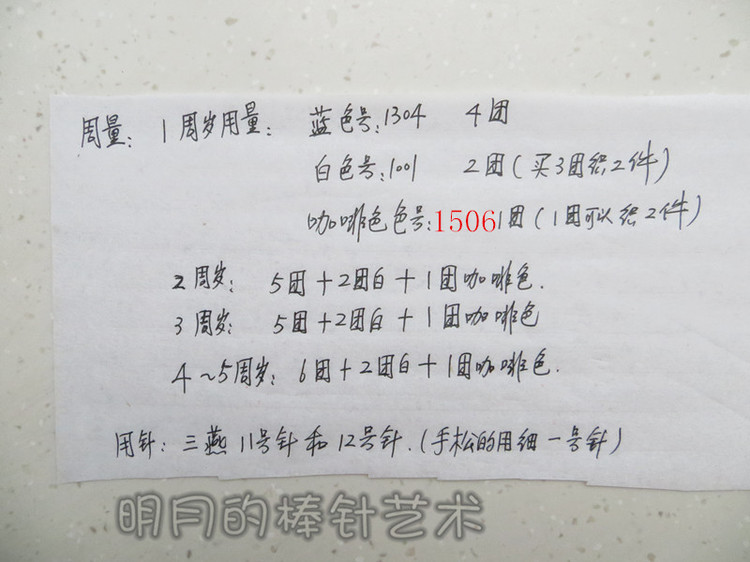 周量：1周岁用量：蓝色号：1304 4团
白色号：1001 2团（买3团织2件）
咖啡色色号：1506 1团（1团可以织2件）
2周岁：5团＋2团白＋1团咖啡色.
3周岁：5团＋2团白＋1团咖啡色
4～5周岁：6团＋2团白＋1团咖啡色.
用针：三燕11号针和12号针.（手松的用细一号针）
明月的棒针艺术